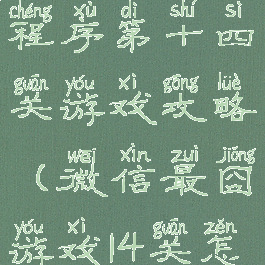 chéng xù dì shí sì
程序第十四
guān yóu xì gōng lüè
关游戏攻略
wēi xìn zuì jiǒng
（微信最囧
yóu xì guān zěn
游戏14关怎